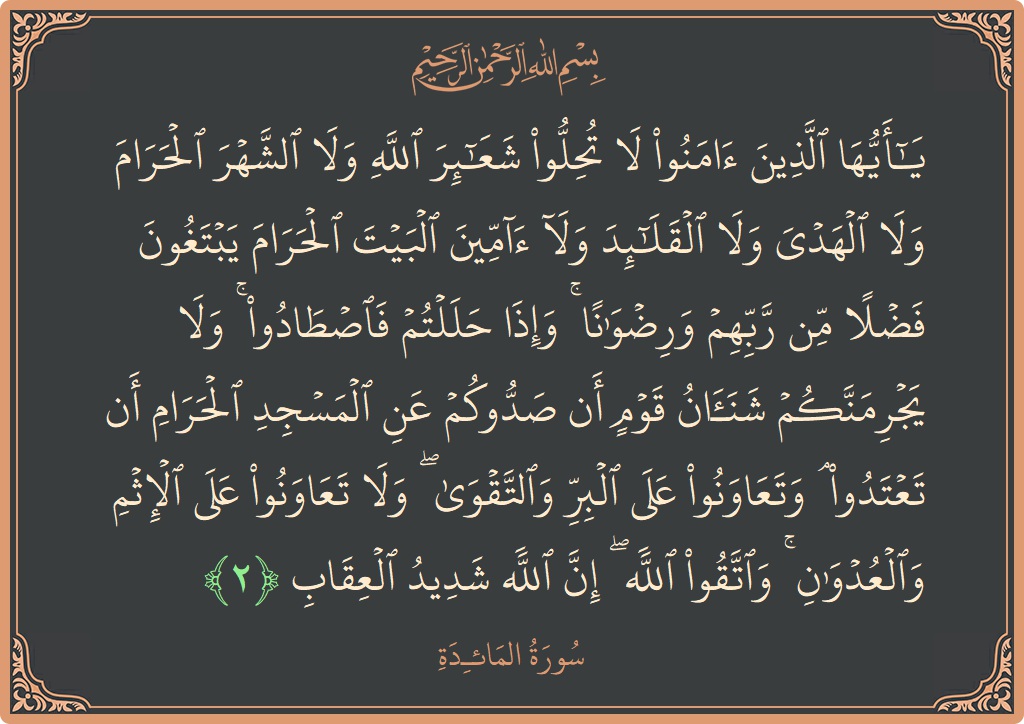 بِسْمِ اللهِ الرَّحْمٰنِ الرَّحِيْمِ
يَـٰٓأَيُّهَا ٱلَّذِينَ ءَامَنُوا۟ لَا تُحِلُّوا۟ شَعَـٰٓئِرَ ٱللَّهِ وَلَا ٱلشَّهْرَ ٱلْحَرَامَ
وَلَا ٱلْهَدْىَ وَلَا ٱلْقَلَـٰٓئِدَ وَلَآ ءَآمِّينَ ٱلْبَيْتَ ٱلْحَرَامَ يَبْتَغُونَ
فَضْلًا مِّن رَّبِّهِمْ وَرِضْوَٰنًا ۚ وَإِذَا حَلَلْتُمْ فَٱصْطَادُوا۟ ۚ وَلَا
يَجْرِمَنَّكُمْ شَنَـَٔانُ قَوْمٍ أَن صَدُّوكُمْ عَنِ ٱلْمَسْجِدِ ٱلْحَرَامِ أَن
تَعْتَدُوا۟ ۘ وَتَعَاوَنُوا۟ عَلَى ٱلْبِرِّ وَٱلتَّقْوَىٰ ۖ وَلَا تَعَاوَنُوا۟ عَلَى ٱلْإِثْمِ
وَٱلْعُدْوَٰنِ ۚ وَٱتَّقُوا۟ ٱللَّهَ ۖ إِنَّ ٱللَّهَ شَدِيدُ ٱلْعِقَابِ ﴿٢﴾
سُورَةُ المَائـِدَةِ